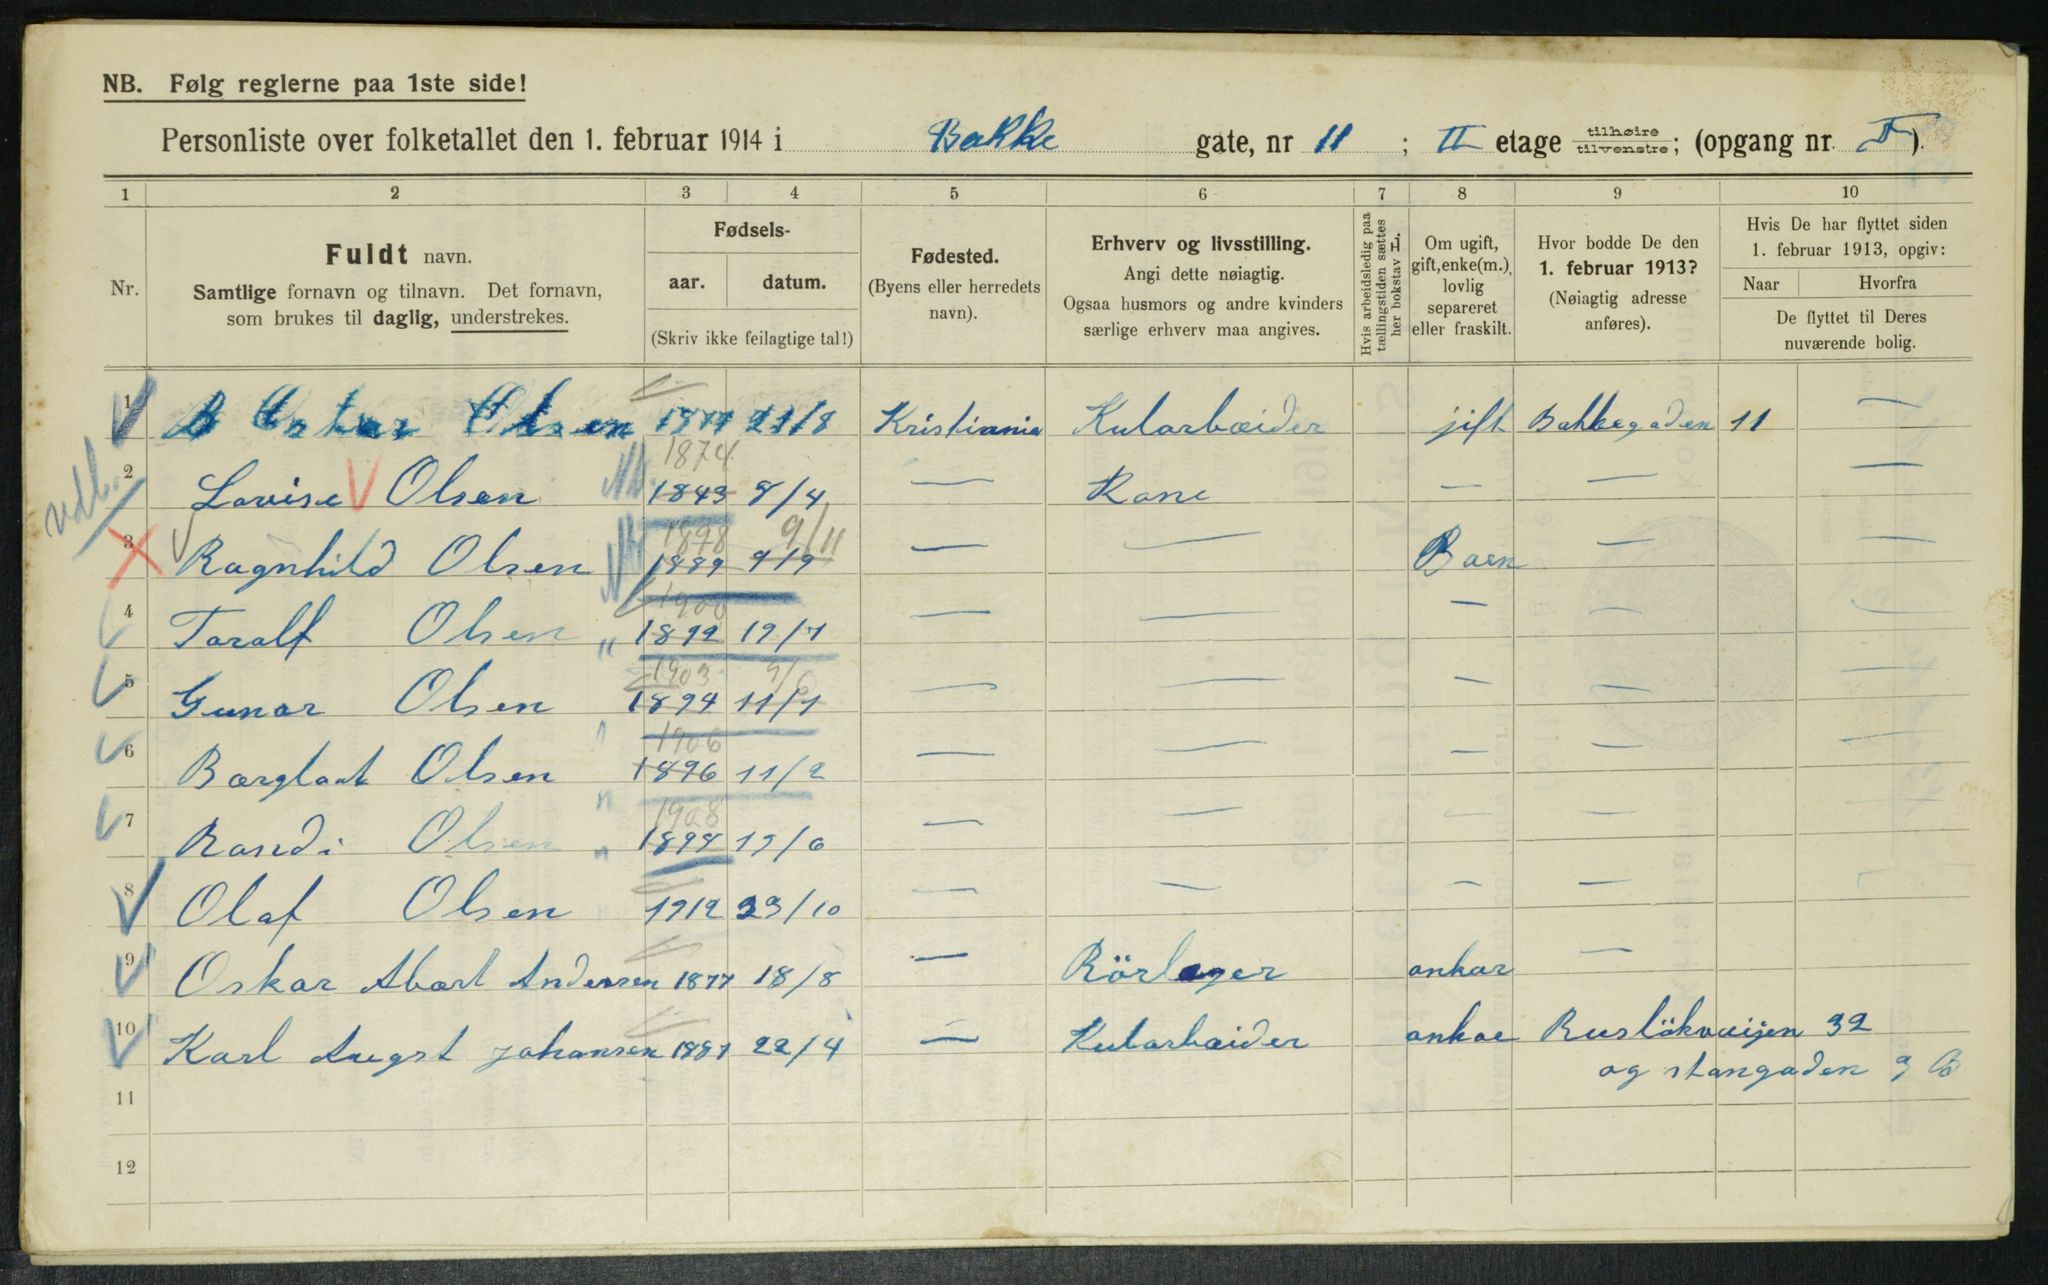 NB. Følg reglerne paa 1ste side!
Personliste over folketallet den 1. februar 1914 i Bakke gate, nr 11 ; II etage tilhøire tilvenstre; (opgang nr. ).
1 2 3 4 5 6 7 8 9 10
Nr.
Fuldt navn.
Samtlige fornavn og tilnavn. Det fornavn,
som brukes til daglig, understrekes.
Fødsels-
aar. datum.
(Skriv ikke feilagtige tal!)
Fødested.
(Byens eller herredets
navn).
Erhverv og livsstilling.
Angi dette nøiagtig.
Ogsaa husmors og andre kvinders
særlige erhverv maa angives.
Hvis arbeidsledig paa
tællingstiden sættes
her bokstav L.
Om ugift,
gift, enke(m.),
lovlig
separeret
eller fraskilt.
Hvor bodde De den
1. februar 1913?
(Nøiagtig adresse
anføres).
Hvis De har flyttet siden
1. februar 1913, opgiv:
Naar Hvorfra
De flyttet til Deres
nuværende bolig.
1 Oskar Olsen 1877 21/8 Kristiania Kularbæider jift Bakkegaden 11 —
1874
2 Lovise Olsen 1843 8/4 — Kone — — —
vdb.
1898 9/11
3 Ragnhild Olsen 1889 9/9 — — Barn — —
1900
4 Toralf Olsen " 1892 19/7 — — — — —
1903
5 Gunar Olsen 1894 11/1 — — — — —
1906
6 Borglaat Olsen " 1896 11/2 — — — — —
1908
7 Randi Olsen " 1898 19/6 — — — — —
8 Olaf Olsen 1912 23/10 — — — —
9 Oskar Abart Andersen 1877 18/8 — Rörleger onkar —
10 Karl Augst Johansen 1881 22/4 — Kularbæider onkae Ruslökvæijen 32
og stangaden 9 B
11
12